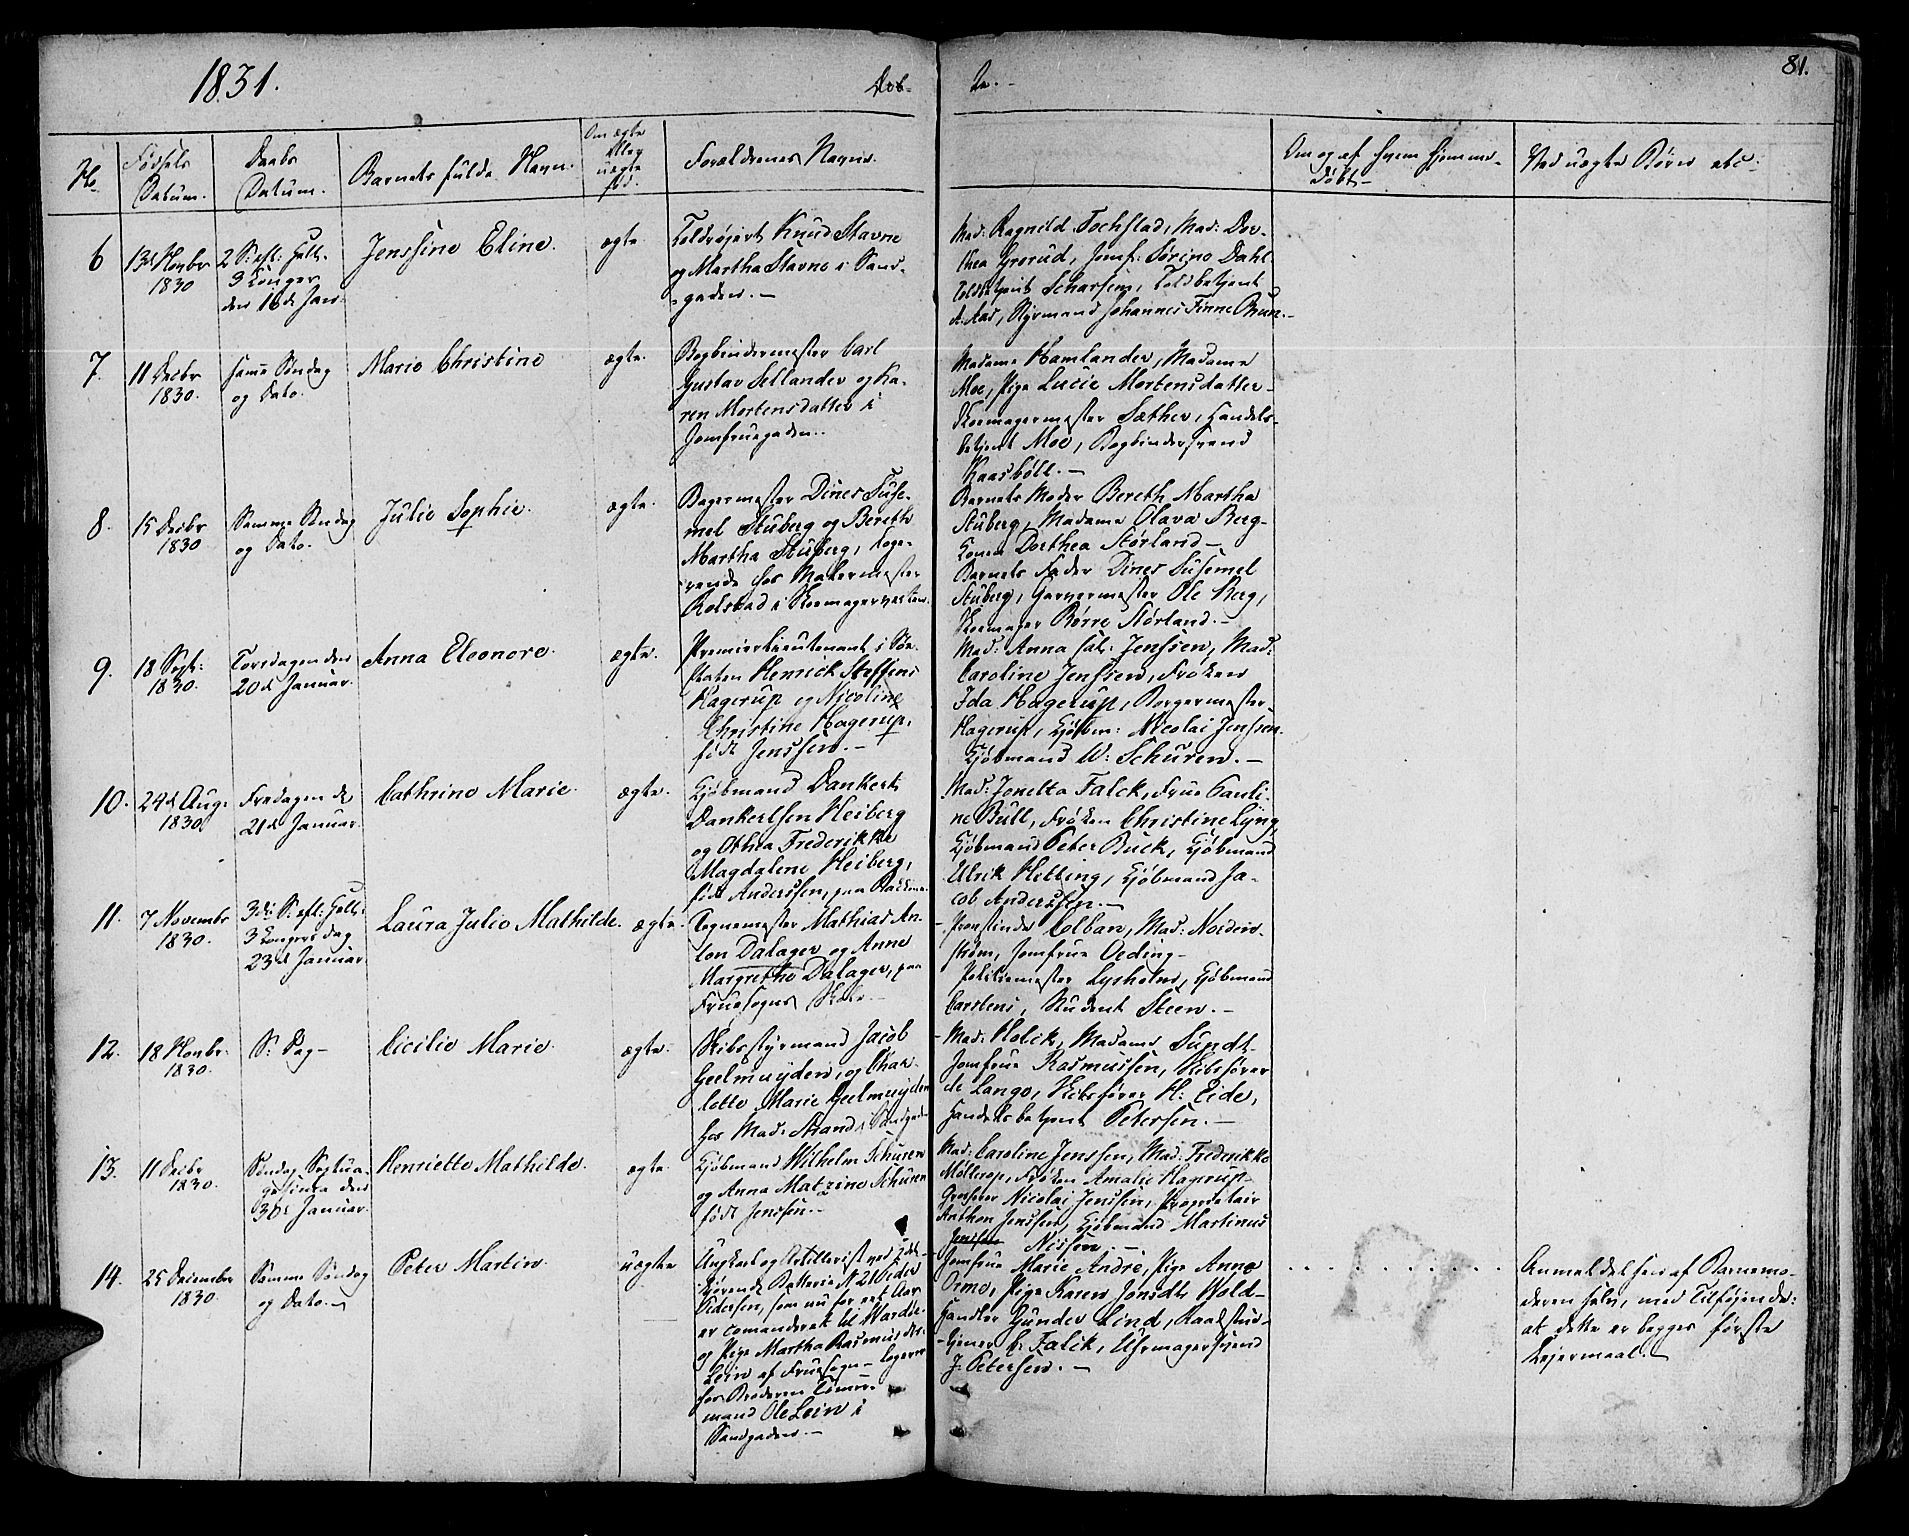 1831.
Døb-
te.-
81.
No
Fødsels
Datum.
Daabs
Datum.
Barnets fulde Navn.
Om ægte
eller
uægte
fød.
Forældrenes Navne.
Om og af hvem hjemme-
døbt-
Ved uægte Børn etc:
6
13d Novbr
1830
2 S: eft: Hell.
3 Konger
den 16d Jan.
Jenssine Eline.
ægte.
Toldrojert Knud Stavne
og Martha Stavne i Sand-
gaden.-
Mad: Ragnild Fochstad, Mad: Dor-
thea Grørud, Jomf: Sørine Dahl
Toldbetjent Scharfein, Toldbetjent
A: Aas, Styrmand Johannes Finne Bruun.-
7.
11 Decbr
1830.
samme Søndag
og Dato.
Marie Christine
ægte.
Bogbindermester Carl
Gustav Sellander og Ka-
ren Mortensdatter i
Jomfruegaden..
Madame Hamlander, Madame
Moe, Pige Lucie Mortensdatter-
Skomagermester Sæther, Handels-
betjent Moe, Bogbindersvend
Kaasbøll.-
8.
15 Decbr
1830
Samme Søndag
og Dato.
Julie Sophie.
ægte.
Bagermester Dines Suse-
mel Stuberg og Bereth
Martha Stuberg, loge-
rende hos Malermester
Rolstad i Skomagerveiten.
Barnets Moder Bereth Martha
Stuberg, Madame Olava Berg-
Konen Dorthea Størland-
Barnets Fader Dines Susemel
Stuberg, Garvermester Ole Berg,
Skomager Børre Størland.-
9.
18 Sept:
1830.
Torsdagen den
20d Januar.
Anna Eleonore.
ægte.
Premierlieutenant i Søe
staten Henrick Steffens
Hagerup og Nicoline
Christine Hagerup,
født Jenssen.-
Mad: Anna sal: Jenssen, Mad:
Caroline Jenssen, Frøken
Ida Hagerup, Borgermester-
Hagerup, Kjøbm: Nicolai Jenssen.
Kjøbmand W: Schuren.-
10.
24d Aug.
1830
Fredagen d
21d Januar.
Cathrine Marie.
ægte.
Kjøbmand Dankert
Dankertsen Heiberg
og Othea Frederikke
Magdalene Heiberg,
født Anderssen, paa Bakkene.
Mad: Jonetta Falck, Frue Pauli-
ne Bull, Frøken Christine Lyng,
Kjøbmand Peter Buck, Kjøbmand
Ulrik Hetting, Kjøbmand Ja-
cob Anderssen.-
11.
7 Novembr
1830.
3die S: eft: Hell:
3 Kongers dag
23d Januar.
Laura Julie Mathilde.
ægte.
Tegnemester Mathias An-
ton Dalager og Anne
Margrethe Dalager, paa
Fruesogns Skole.-
- Provstinde Colban, Mad: Norden-
strøm, Jomfrue Oeding-
Politiemester Lysholm, Kjøbmand
Carstens, Student Steen.-
12.
18 Novbr.
1830.
S: Dag-
Cicilie Marie.
ægte.
Skibsstyrmand Jacob
Geelmuyden, og Char-
lotte Marie Geelmuyden
hos Mad: Strand i Sandgaden
- Mad: Holck, Madame Sundt-
Jomfrue Rasmussen, Skibsfører
de Lange, Skibsfører H: Eide,
Handelsbetjent Petersen.-
13.
11 Decbr
1830.
Søndag Septua-
gesima den
30d Januar.
Henriette Mathilde.
ægte.
Kjøbmand Wilhelm Schuren
og Anna Matzine Schuren
født Jenssen.-
Mad: Caroline Jenssen, Mad: Frederikke
Møllerop, Frøken Amalie Hagerup-
Grosserer Nicolai Jenssen, Proprietair
Anthon Jenssen, Kjøbmand Martinus
Jenssen Nissen.-
14.
25 Decembr
1830.
Samme Søndag
og Dato.-
Peter Martin.
uægte
Ungkarl og Artillerist ved Fodt-
gjørende Batterie N 2 Peder
Pedersen, som nu for eet Aar
er comanderet til Wardøe-
og Pige Martha Rasmusdtr
Lein af Fruesogn- logerer
hos Broderen Tømmer-
mand Ole Lein i
Sandgaden.-
Jomfrue Marie Andre, Pige Anne
Ormo, Pige Karen Jonsdtr Wold-
Handler Gunder Lind, Raadstue-
tjener C: Falck, Uhrmagersvend
J: Petersen.-
Anmeldelsen af Barnemo-
deren selv, med Tilføjende:
at dette er begges første
Lejermaal.-